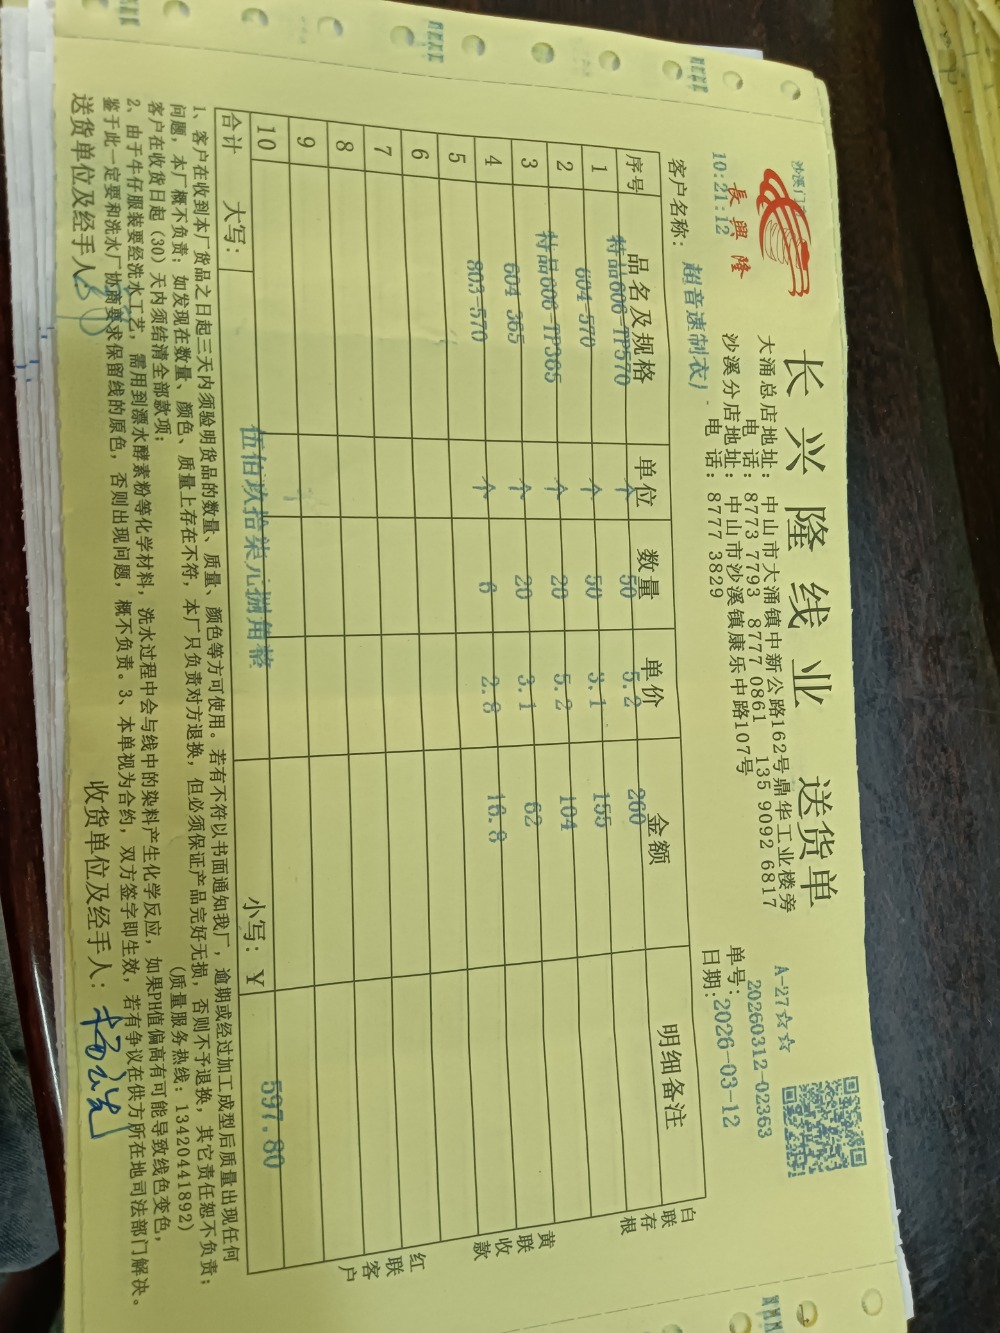 沙溪门
長興隆
10:21:12
长兴隆线业 送货单
大涌总店地址: 中山市大涌镇中新公路162号鼎华工业楼旁
电 话: 8773 7793 8777 0861 135 9092 6817
沙溪分店地址: 中山市沙溪镇康乐中路107号
电 话: 8777 3829
A-27☆☆
单号: 20260312-02363
日期: 2026-03-12
客户名称: 超音速制衣厂
序号 品名及规格 单位 数量 单价 金额 明细备注
1 特品606-TP570 个 50 5.2 260
2 604-570 个 50 3.1 155
3 特品606-TP365 个 20 5.2 104
4 604-365 个 20 3.1 62
5 803-570 个 6 2.8 16.8
6
7
8
9
10
合计 大写: 伍佰玖拾柒元捌角整 小写: ¥ 597.80
白联存根
黄联收款
红联客户
1、客户在收到本厂货品之日起三天内须验明货品的数量、质量、颜色等方可使用。若有不符以书面通知我厂,逾期或经过加工成型后质量出现任何
问题,本厂概不负责;如发现在数量、颜色、质量上存在不符,本厂只负责对方退换,但必须保证产品完好无损,否则不予退换,其它责任恕不负责;
客户在收货日起(30)天内须结清全部款项; (质量服务热线:13420441892)
2、由于牛仔服装要经洗水工艺,需用到漂水酵素粉等化学材料,洗水过程中会与线中的染料产生化学反应,如果PH值偏高有可能导致线色变色,
鉴于此一定要和洗水厂协商要求保留线的原色,否则出现问题,概不负责。3、本单视为合约,双方签字即生效,若有争议在供方所在地司法部门解决。
送货单位及经手人: 收货单位及经手人: